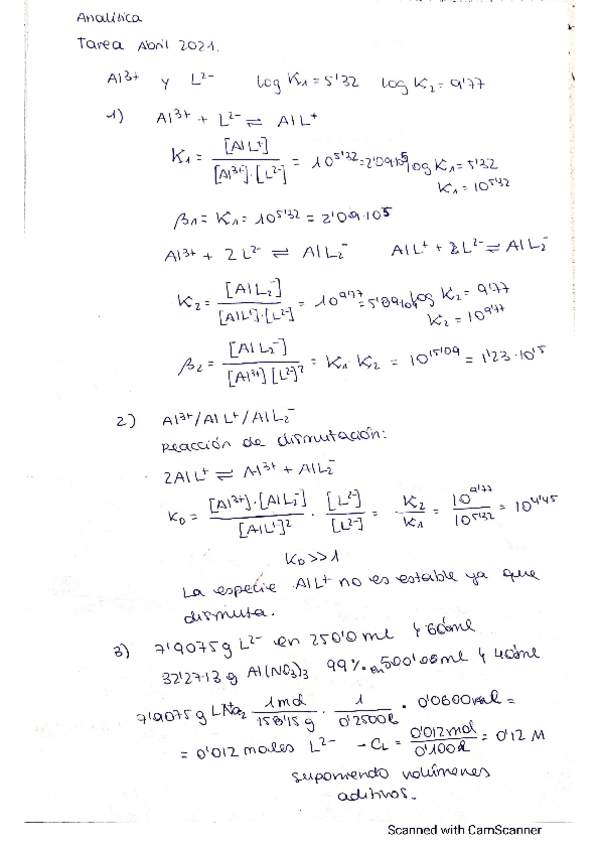 Analítica
Tarea Abril 2021.
Al3+ y L2- log K1 = 5'32 log K2 = 9'77
1) Al3+ + L2- ⇌ AlL+
K1 = [AlL+] / [Al3+]·[L2-] = 10^5'32 = 2'09·10^5 log K1 = 5'32
K1 = 10^5'32
β1 = K1 = 10^5'32 = 2'09·10^5
Al3+ + 2L2- ⇌ AlL2- AlL+ + L2- ⇌ AlL2-
K2 = [AlL2-] / [AlL+]·[L2-] = 10^9'77 = 5'89·10^9 log K2 = 9'77
K2 = 10^9'77
β2 = [AlL2-] / [Al3+][L2-]^2 = K1·K2 = 10^15'09 = 1'23·10^15
2) Al3+/AlL+/AlL2-
Reacción de dismutación:
2AlL+ ⇌ Al3+ + AlL2-
KD = [Al3+]·[AlL2-] / [AlL+]^2 · [L2-] / [L2-] = K2 / K1 = 10^9'77 / 10^5'32 = 10^4'45
KD >> 1
La especie AlL+ no es estable ya que
dismuta.
3) 7'9075 g L2- en 250'0 ml y 60'0 ml
32'2713 g Al(NO3)3 99% en 500'00 ml y 40'0 ml
7'9075 g LNa2 · 1 mol / 158'15 g · 1 / 0'2500 l · 0'0600 l =
= 0'012 moles L2- - CL = 0'012 mol / 0'100 l = 0'12 M
suponiendo volúmenes
aditivos.
Scanned with CamScanner